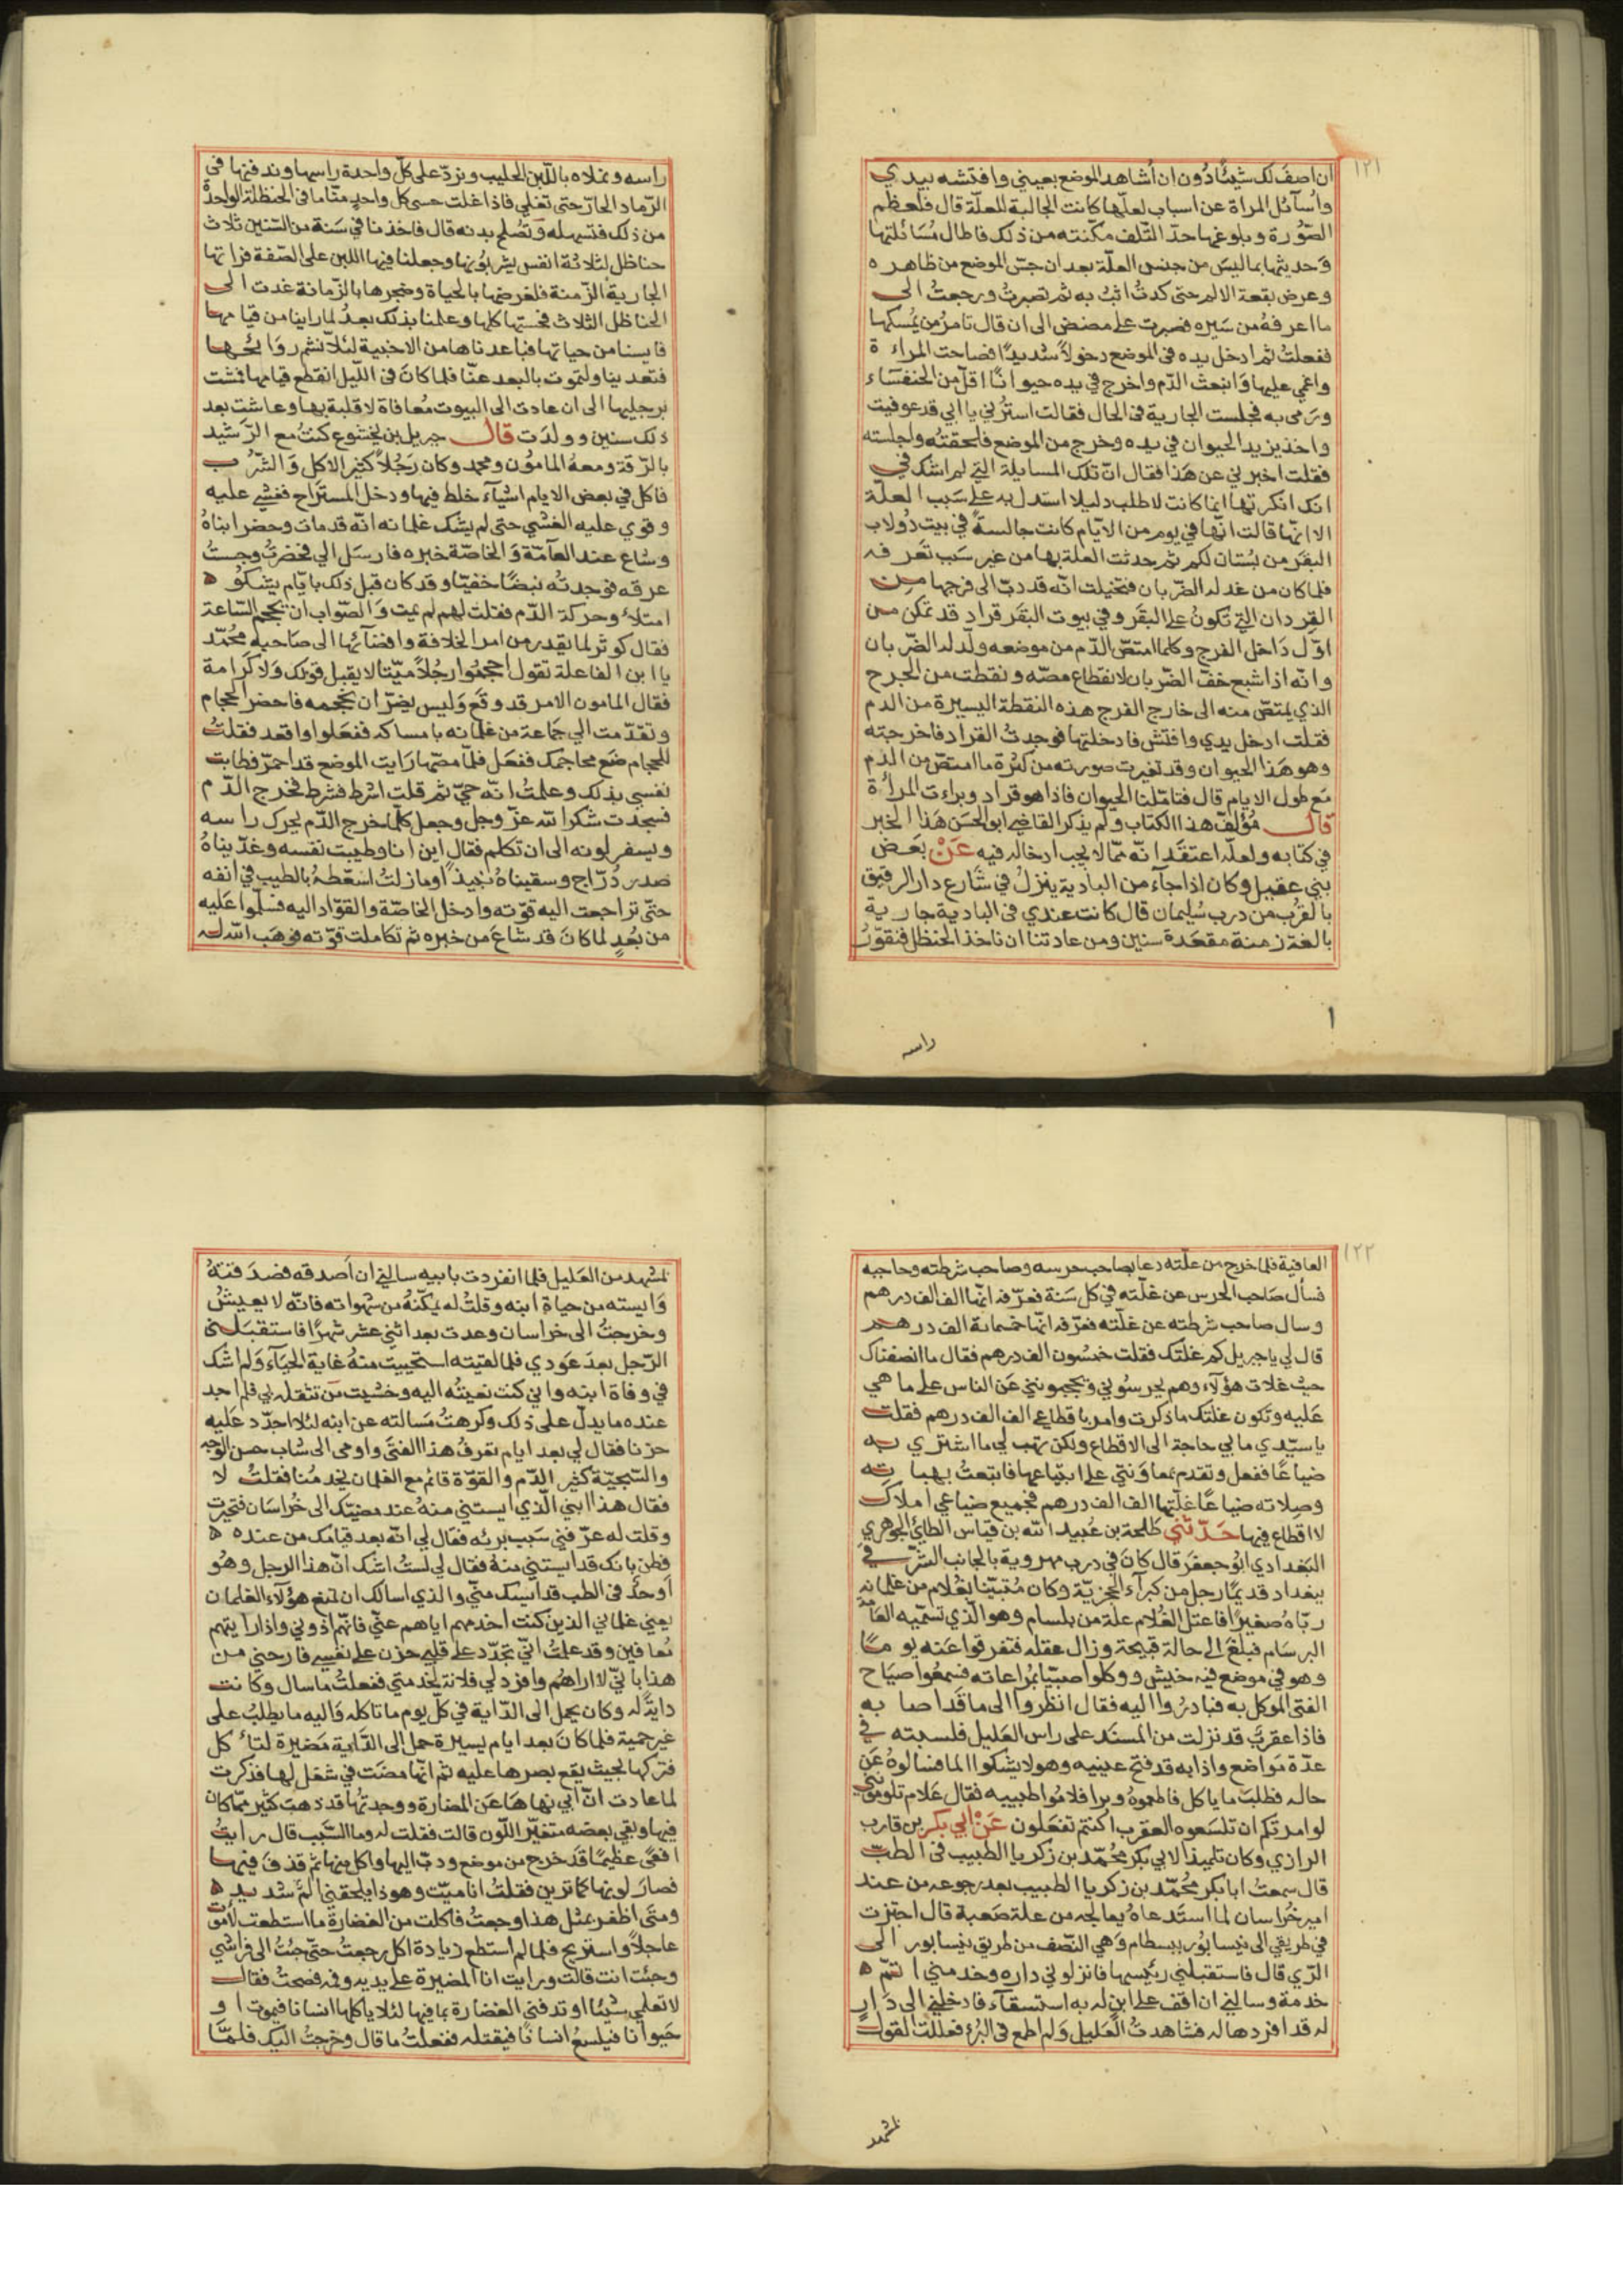 ١٢١
ان اصف لك شيئًا دُون ان أشاهد الموضع بعيني وافتشه بيدي
واُسآئل المراة عن اسباب لعلّها كانت الجالبة للعلّة قال فلعظم
الصّورة وبلوغها حدّ التّلف مكّنته من ذلك فاطال مُسَائلتها
وَحديثها بما ليسَ من جنس العلّة بعد ان جسّ الموضع من ظاهره
وعرض بقعة الالم حتى كدتُ اثبُ به ثم تصبرتُ ورجعتُ الى
ما اعرفهُ من سَيره فصبرت على مضض الى ان قال تامرُ من يُمسكها
ففعلتُ ثم ادخل يده في الموضع دخولاً شديدًا فصاحت المراءة
واغمي عليها وَانبعث الدّم واخرج في يده حيوانًا اقلّ من الخنفسَاء
ورَمى به فجلست الجارية في الحال فقالت استرُني يا ابي قد عوفيت
واخذ يزيد الحيوان في يده وخرج من الموضع فلحقتُه واجلسته
فقلت اخبرني عن هَذا فقال انّ تلك المسايلة التي لم اشك في
انك انكرتها انما كانت لاطلب دليلا استدل به على سَبب العلّة
الا انّها قالت انّها في يوم من الايّام كانت جالسةً في بيت دُولاب
البقَر من بُستان لكم ثم حدثت العلة بها من غير سَبب تعَرفه
فلما كان من غد له الضّربان فتخيلت انّه قد دبّ الى فرجها من
القِردان التي تكونُ على البقَر وفي بيوت البقَر قراد قد تمكن من
اوّل دَاخل الفرج وكلما امتصّ الدّم من موضعه ولّد له الضّربان
وانّه اذا شبع خفّ الضّربان لانقطاع مصّه ونقطت من الجرح
الذي يمتصّ منه الى خارج الفرج هذه النقطة اليسيرة من الدم
فقلت ادخل يدي وافتّش فادخلتها فوجدتُ القراد فاخرجته
وهو هَذا الحيوان وقد تغيرت صورته من كثرة ما امتصّ من الدّم
مَع طول الايام قال فتامّلنا الحيوان فاذا هو قراد وبراءت المراءة
قال مُؤلفُ هذا الكتاب ولم يذكر القاضي ابو الحسَن هَذا الخبر
في كتابه ولعلّه اعتقَد انّه ممّا لا يجب ادخاله فيه عَنْ بعَض
بني عقيل وكان اذا جآء من البادية ينزلُ في شارع دار الرقيق
بالقرُب من درب سُليمان قال كانت عندي في البادية جارية
بالغة زمنة مقعَدة سنين ومن عادتنا ان ناخذ الحنظل فنقوّرُ
راسه
راسه ونملاه باللّبن الحليب ونردّ على كلّ واحدة راسها وندفنها في
الرّماد الحارّ حتى تغلي فاذا غلت حسى كل واحدٍ منّا ما في الحنظلة الواحدة
من ذلك فتسهله وَتصُلح بدنه قال فاخذنا في سَنة من السّنين ثلاث
حناظل لثلاثة انفس يشربُونها وجعلنا فيها اللبن على الصّفة فراتها
الجارية الزّمنة فلغرضها بالحياة وضجرها بالزّمانة غدت الى
الحناظل الثلاث فحستها كلها وعلمنا بذلك بعدُ لما راينا من قيامها
فايسنا من حياتها فباعدناها من الاخبية لئلّا نشم رَوَائحها
فتعدينا ولتموت بالبعد عنّا فلما كانَ في اللّيل انقطع قيامها فمشت
برجليها الى ان عادت الى البيوت مُعافاة لا قلبة بها وعاشت بعد
ذلك سنين وولدَت قال جبريل بن بختشوع كنتُ مع الرّشيد
بالرّقة ومعهُ المامُون ومحمد وكان رَجُلاً كثير الاكل وَالشّرب
فاكل في بعض الايام اشيآء خلط فيها ودخل المستَراح فغشي عليه
وقوي عليه الغشي حتى لم يشك غلمانه انّه قد مات وحضر ابناهُ
وشاع عند العآمّة وَالخاصّة خبره فارسَل الي فحضرتُ وجست
عرقه فوجدتُه نبضًا خفيّا وقد كان قبل ذلك بايّام يشكو
امتلاءً وحركة الدّم فقلت لهم لم يمت وَالصّواب ان يحجم السّاعة
فقال كوثر لما يقدر من امر الخلافة وافضائها الى صَاحبه محُمّد
يا ابن الفاعلة تقول احجمُوا رجُلاً ميّتا لا يقبل قولك وَلا كَرامة
فقال المامون الامر قد وقع وَليس يضرّ ان نحجمه فاحضر الحجام
وتقدّمت الي جمَاعة من غلمانه بامساكه ففعَلوا واقعد فقلتُ
للحجام ضَع محاجمك ففعَل فلمّا مصّها رَايت الموضع قد احمرّ فطابت
نفسي بذلك وعلمتُ انّه حيّ ثم قلت اشرط فشرط فخرج الدّم
فسجدت شكرا لله عزّ وجل وجعل كلّما خرج الدّم يحرك راسه
ويسفر لونه الى ان تكلم فقال اين انا وطيبت نفسه وغدّيناهُ
صدر دُرّاج وسقيناهُ نبيذًا وما زلتُ اسَعّطهُ بالطيب في انفه
حتّى تراجعت اليه قوّته وادخل الخاصّة والقوّاد اليه فسلّموا عَليه
من بُعدٍ لما كانَ قد شاعَ من خبره ثم تكاملت قوّته فوهَب الله له
١٢٢
العافية فلما خرج من علّته دعا بصاحب حرسه وصاحب شرطته وحاجبه
فسأل صَاحب الحرس عن غلّته في كل سَنة فعرّفه انّها الف الف درهم
وسال صاحب شرطته عن غلّته فعرّفه انّها خمسماية الف درهم
قال لي يا جبريل كم غلتك فقلت خمسُون الف درهم فقال ما انصفناك
حيثُ غلات هؤلآء وهم يحرسُوني ويحجبونني عَن الناس على ما هي
عَليه وتكون غلّتك ما ذكرت وامر باقطاعي الف الف درهم فقلت
يا سيّدي ما بي حاجة الى الاقطاع ولكن تهب لي ما اشتري به
ضياعًا ففعل وتقدم بمعاوَنتي على ابتياعها فابتعتُ بهباته
وصِلاته ضياعًا غلّتها الف الف درهم فجميع ضياعي املاك
لا اقطاع فيها حَدّثني طَلحة بن عُبيد الله بن قناش الطائي الجوهري
البَغدادي ابُو جعفَر قال كانَ في درب مهروية بالجانب الشّرقي
ببغداد قديمًا رجل من كبرآء الحجريّة وكان مُتبنّيًا بغُلام من غلمانه
ربّاهُ صغيرًا فاعتل الغُلام علة من بلسام وهو الّذي تسمّيه العَامّة
البرسَام فبلغَ الى حالة قبيحة وزال عقله فتفرقوا عَنه يومًا
وهو في موضع فيه خيش ووكلوا صبّيًا بمُراعاته فسمعُوا صيَاح
الفتى الموكل به فبادرُوا اليه فقال انظروا الى ما قَد اصابه
فاذا عقربٌ قد نزلت من المسنَد على راس العَليل فلسعته في
عدّة مَواضع واذا به قد فتح عينيه وهو لا يشكوا الما فسالوهُ عَن
حاله فطلبَ ما ياكل فاطعموهُ وبرا فلامُوا طبيبه فقال عَلام تلومُونني
لو امرَتكم ان تلسَعوه العقرب اكنتم تفعَلون عَنْ ابي بكر بن قارب
الرازي وكان تلميذا لابي بكر محُمّد بن زكريا الطبيب في الطبّ
قال سمعتُ ابا بكر محُمّد بن زكريا الطبيب بعد رجوعه من عند
امير خُراسان لما استَدعاهُ يعالجه من علة صَعبة قال اجتزت
في طريقي الى نيسابُور ببسطام وَهي النّصف من طريق نيسابور الى
الرّي قال فاستقبلني رئيسها فانزلوني داره وخدمني اتمّ
خدمة وسالني ان اقف على ابنٍ له به استسقآء فادخلني الى دَارٍ
له قد افردها له فشاهدتُ العَليل وَلم اطمع في البُرء فعللت القول
بمشهد
بمشهد من العَليل فلما انفردت بابيه سالني ان اَصدقه فصدَقتهُ
وَايسته من حياة ابنه وقلتُ له مكّنهُ من شهواته فانّه لا يعيشُ
وخرجتُ الى خراسان وعدت بعد اثني عشر شهرًا فاستقبَلني
الرّجل بعدَ عَودي فلما لقيته استحييت منهُ غاية الحيَآء وَلم اشك
في وفاة ابنه واني كنت نعيتُه اليه وخشيت من تثقله بي فلم اجد
عنده ما يدلّ على ذلك وكرهتُ مسَالته عن ابنه لئلا اجدّد عَليه
حزنا فقال لي بعد ايام تعرفُ هذا الفتَى واومى الى شاب حسن الوجه
والسّحيّة كثير الدّم والقوّة قائم مع الغلمان يخدمُنا فقلتُ لا
فقال هذا ابني الّذي ايستني منهُ عند مضيّك الى خُراسَان فتحيرت
وقلت له عرّفني سَبب برئه فقَال لي انّه بعد قيامك من عنده
فطن بانك قد ايستني منهُ فقال لي لستُ اشك انّ هذا الرجل وهُو
اَوحدُ في الطب قد ايسك منّي والذي اسالك ان تمنع هؤلآء الغلمان
يعني غلماني الذين كنت اخدمهم اياهم عنّي فانّهم اذوني واذا رايتهم
مُعافين وقد علمتُ انّي تجدّد على قلبي حزن على نفسي فارحني من
هذا بانّي لا اراهُم وافرد لي فلانة تخدمني ففعلتُ ما سال وكانت
دايةً له وكان يحمل الى الدّاية في كلّ يوم ما تاكله وَاليه ما يطلبُ على
غير حمية فلما كانَ بعد ايام يسيرة حمل الى الدّاية مَضيرة لتاءكل
فتركها بحيث يقع بصرها عليه ثم انّها مضَت في شغل لها فذكرت
لما عادت انّ ابني نهاهَا عَن الغضارة ووجدتُها قد ذهبَ كثير ممّا كان
فيها وبقي بعضه متغيّر اللّون قالت فقلت له وما السّبب قال رايتُ
افعًى عظيمًا قَد خرج من موضع ودبّ اليها واكل منها ثم قذفَ فيها
فصارَ لونها كما ترين فقلتُ انا ميّت وهو ذا يلحقني الَمٌ شديد
ومتَى اظفر بمثل هذا وجعتُ فاكلت من الغضارة ما استطعت لاموت
عاجلاً واستريح فلما لم استطع زيادة اكل رجعتُ حتّى جئتُ الى فراشي
وجئت انت قالت ورايت انا المضيرة على يديه وفمه فصحتُ فقال
لا تعلمي شيئا او تدفني الغضارة بما فيها لئلا ياكلها انسانا فيموت او
حَيوانا فيلسعُ انسانًا فيقتله ففعلتُ ما قال وخرجتُ اليك فلمّا